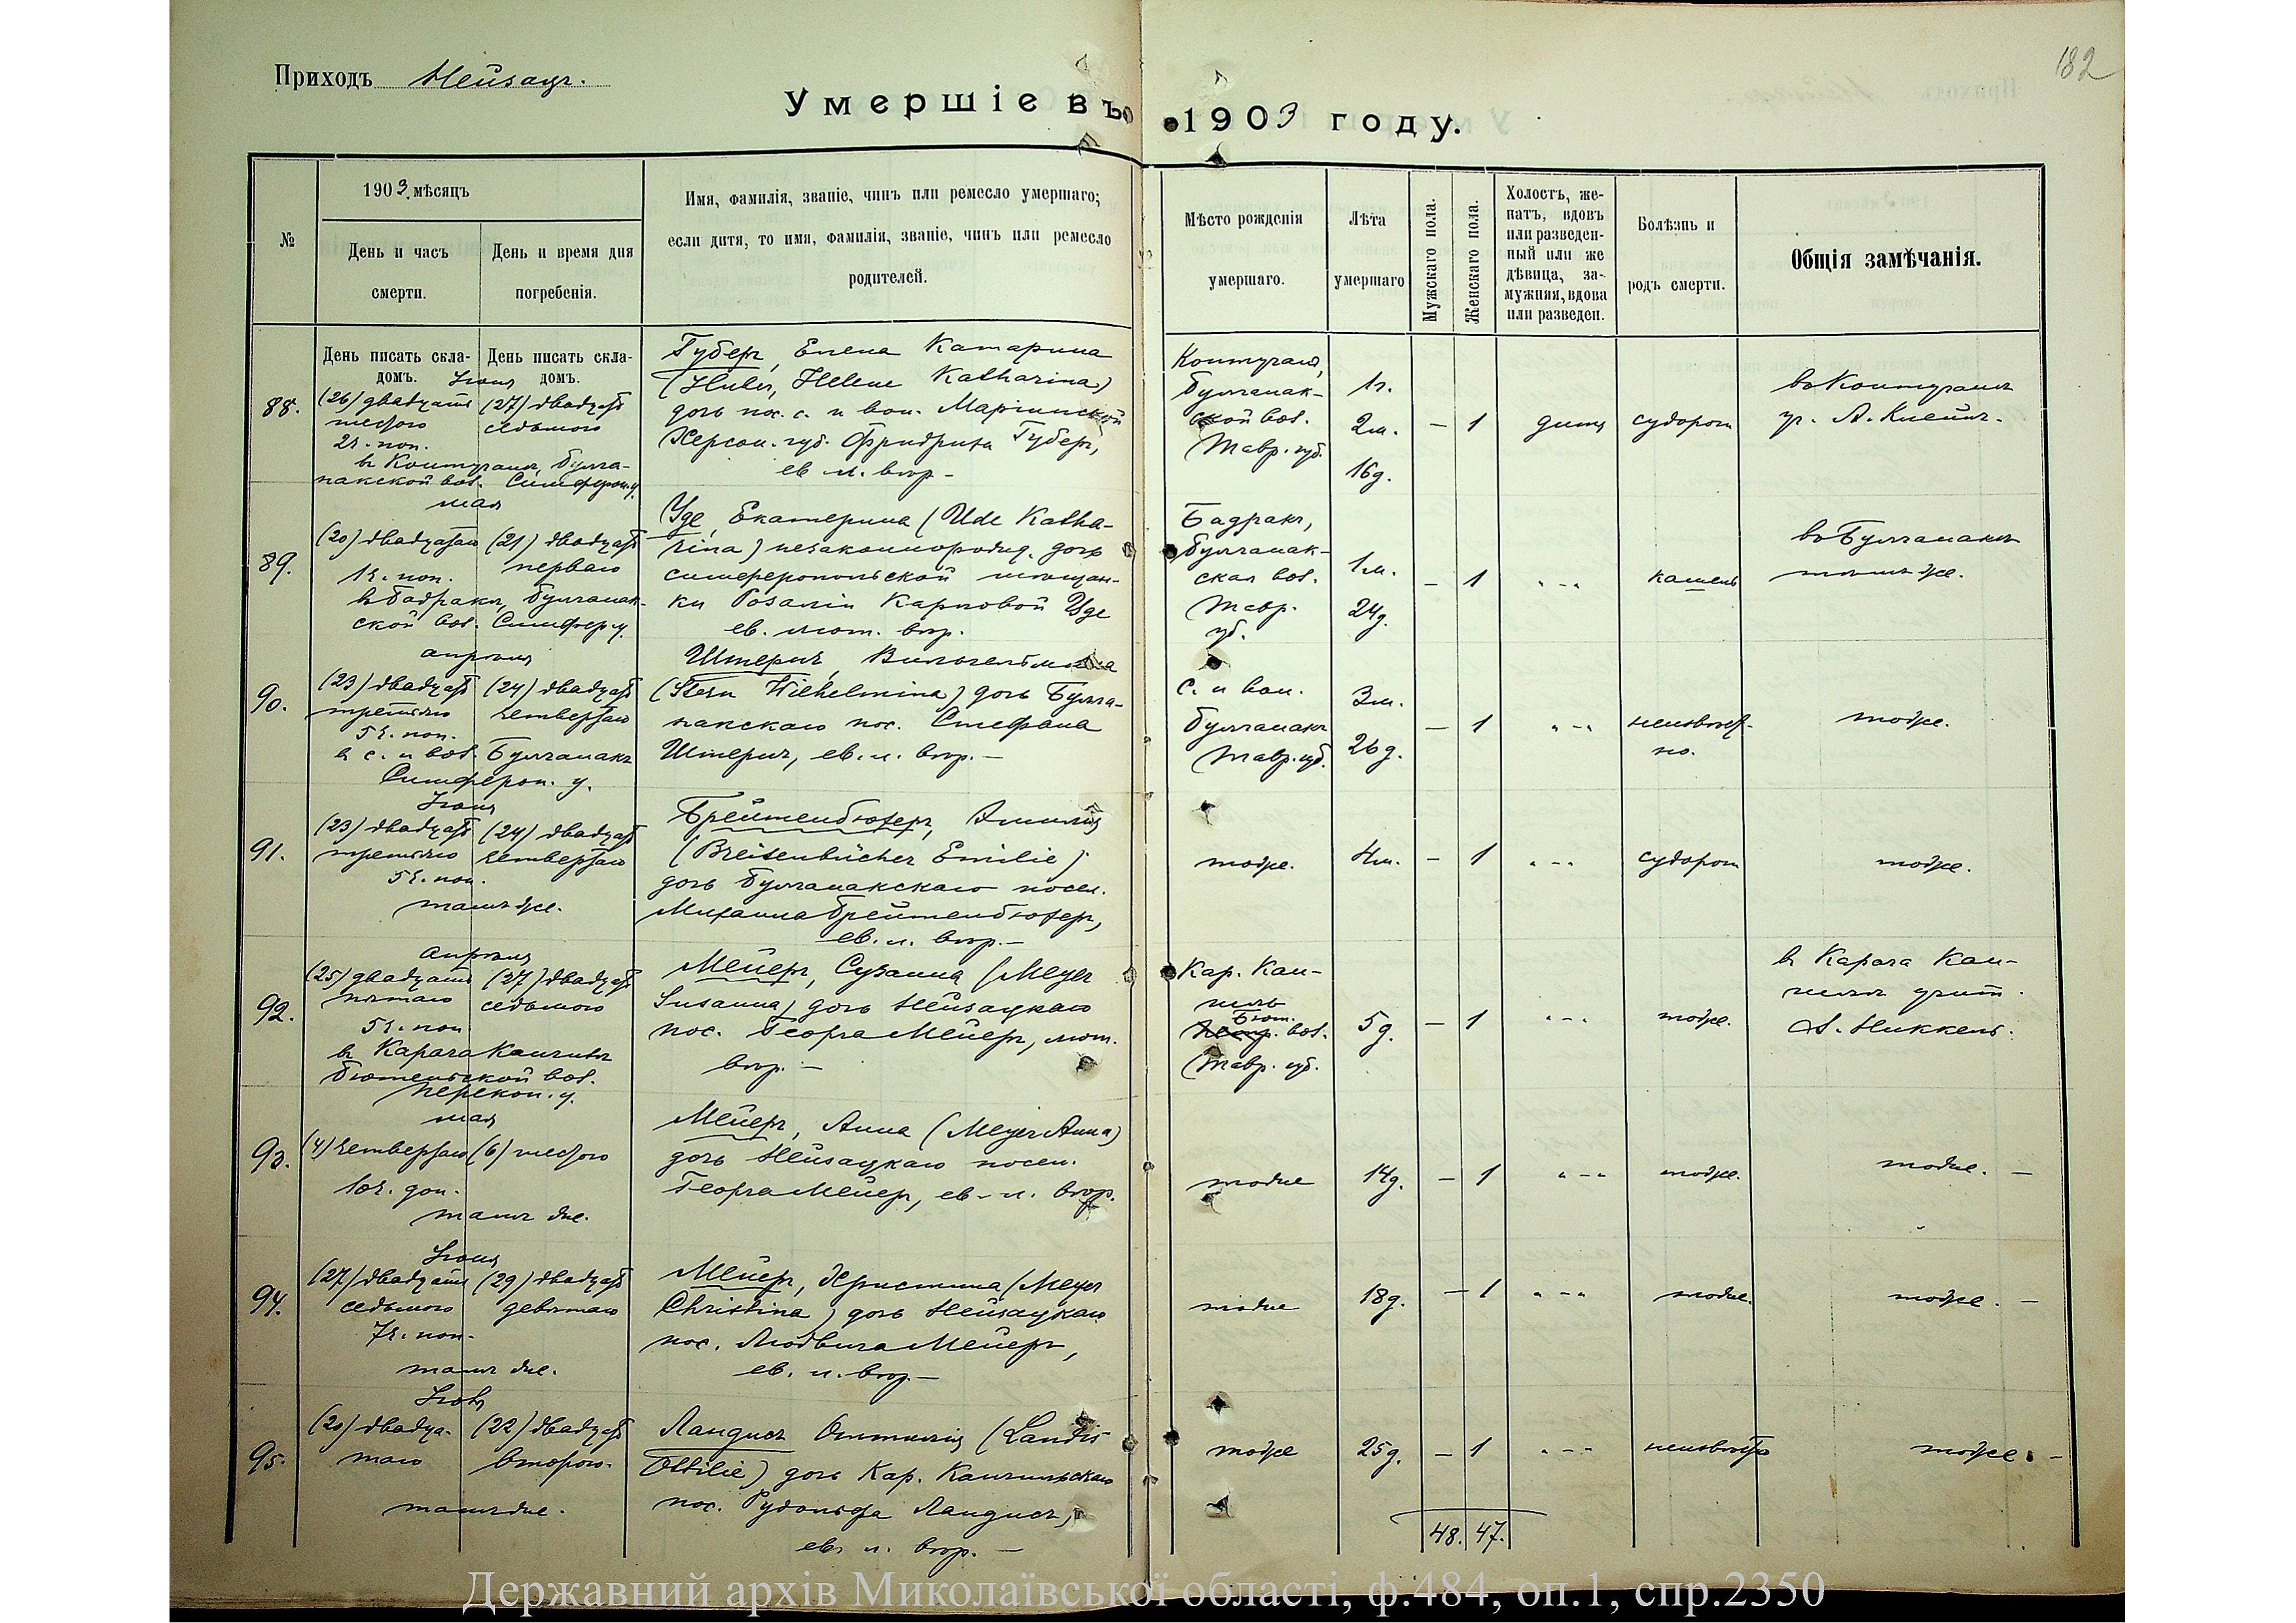 182
Приходъ Нейзацъ.
Умершіе въ 1903 году.
№
1903 мѣсяцъ
День и часъ
смерти.
День и время дня
погребенія.
Имя, фамилія, званіе, чинъ или ремесло умершаго;
если дитя, то имя, фамилія, званіе, чинъ или ремесло
родителей.
Мѣсто рожденія
умершаго.
Лѣта
умершаго
Мужскаго пола.
Женскаго пола.
Холостъ, же-
натъ, вдовъ
или разведен-
ный или же
дѣвица, за-
мужняя, вдова
или разведен.
Болѣзнь и
родъ смерти.
Общія замѣчанія.
День писать скла-
домъ.
День писать скла-
домъ.
Іюня
88.
(26) двадцать
шестого
2 ч. поп.
(27) двадцать
седьмого
въ Контуганѣ, Булга-
накской вол. Симфероп. у.
Губеръ, Елена Катарина
(Huber, Helene Katharina)
дочь пос. с. и вол. Маріинской
Херсон. губ. Фридриха Губеръ,
ев. л. вѣр. –
Контуганъ,
Булганак-
ской вол.
Тавр. губ.
1 г.
2 м.
16 д.
– 1
дитя
судороги
въ Контуганѣ
уч. А. Клейнъ.
мая
89.
(20) двадцатаго
1 ч. поп.
(21) двадцать
перваго
въ Бадракѣ, Булганак-
ской вол. Симфер. у.
Уде, Екатерина (Ude Katha-
rina) незаконнорожд. дочь
симферопольской мѣщан-
ки Розаліи Карловой Уде
ев. лют. вѣр.
Бадракъ,
Булганак-
ская вол.
Тавр.
губ.
1 м.
24 д.
– 1
" – "
кашель
въ Булганакѣ
тотъ же.
апрѣля
90.
(23) двадцать
третьяго
5 ч. поп.
(24) двадцать
четвертаго
въ с. и вол. Булганакъ
Симфероп. у.
Штернъ, Вильгельмина
(Stern Wilhelmina) дочь Булга-
накскаго пос. Стефана
Штернъ, ев. л. вѣр. –
с. и вол.
Булганакъ
Тавр. губ.
3 м.
26 д.
– 1
" – "
неизвѣст-
но.
тоже.
Іюня
91.
(23) двадцать
третьяго
5 ч. поп.
(24) двадцать
четвертаго
тамъ же.
Брейтенбюхеръ, Эмилія
(Breitenbücher Emilie)
дочь Булганакскаго посел.
Михаила Брейтенбюхеръ,
ев. л. вѣр. –
тоже.
4 м.
– 1
" – "
судороги
тоже.
апрѣля
92.
(25) двадцать
пятаго
5 ч. поп.
(27) двадцать
седьмого
въ Карача Кангилѣ
Бютеньской вол.
Перекоп. у.
Мейеръ, Сузанна (Meyer
Susanna) дочь Нейзацкаго
пос. Георга Мейеръ, лют.
вѣр. –
Кар. Кан-
гиль
Бют.
вол.
Тавр. губ.
5 д.
– 1
" – "
тоже.
въ Карача Кан-
гилѣ учит.
А. Никкель.
мая
93.
(4) четвертаго
10 ч. доп.
(6) шестого
тамъ же.
Мейеръ, Анна (Meyer Anna)
дочь Нейзацкаго посел.
Георга Мейеръ, ев. л. вѣр.
тоже
14 д.
– 1
" – "
тоже.
тоже. –
Іюня
94.
(27) двадцать
седьмого
7 ч. поп.
(29) двадцать
девятаго
тамъ же.
Мейеръ, Христина (Meyer
Christina) дочь Нейзацкаго
пос. Людвига Мейеръ,
ев. л. вѣр. –
тоже
18 д.
– 1
" – "
тоже.
тоже. –
95.
(20) двадца-
таго
(22) двадцать
второго.
тамъ же.
Ландисъ Оттилія (Landis
Ottilie) дочь Кар. Кангильскаго
пос. Рудольфа Ландисъ,
ев. л. вѣр. –
тоже
25 д.
– 1
" – "
неизвѣстно
тоже. –
48. 47.
Державний архів Миколаївської області, ф.484, оп.1, спр.2350